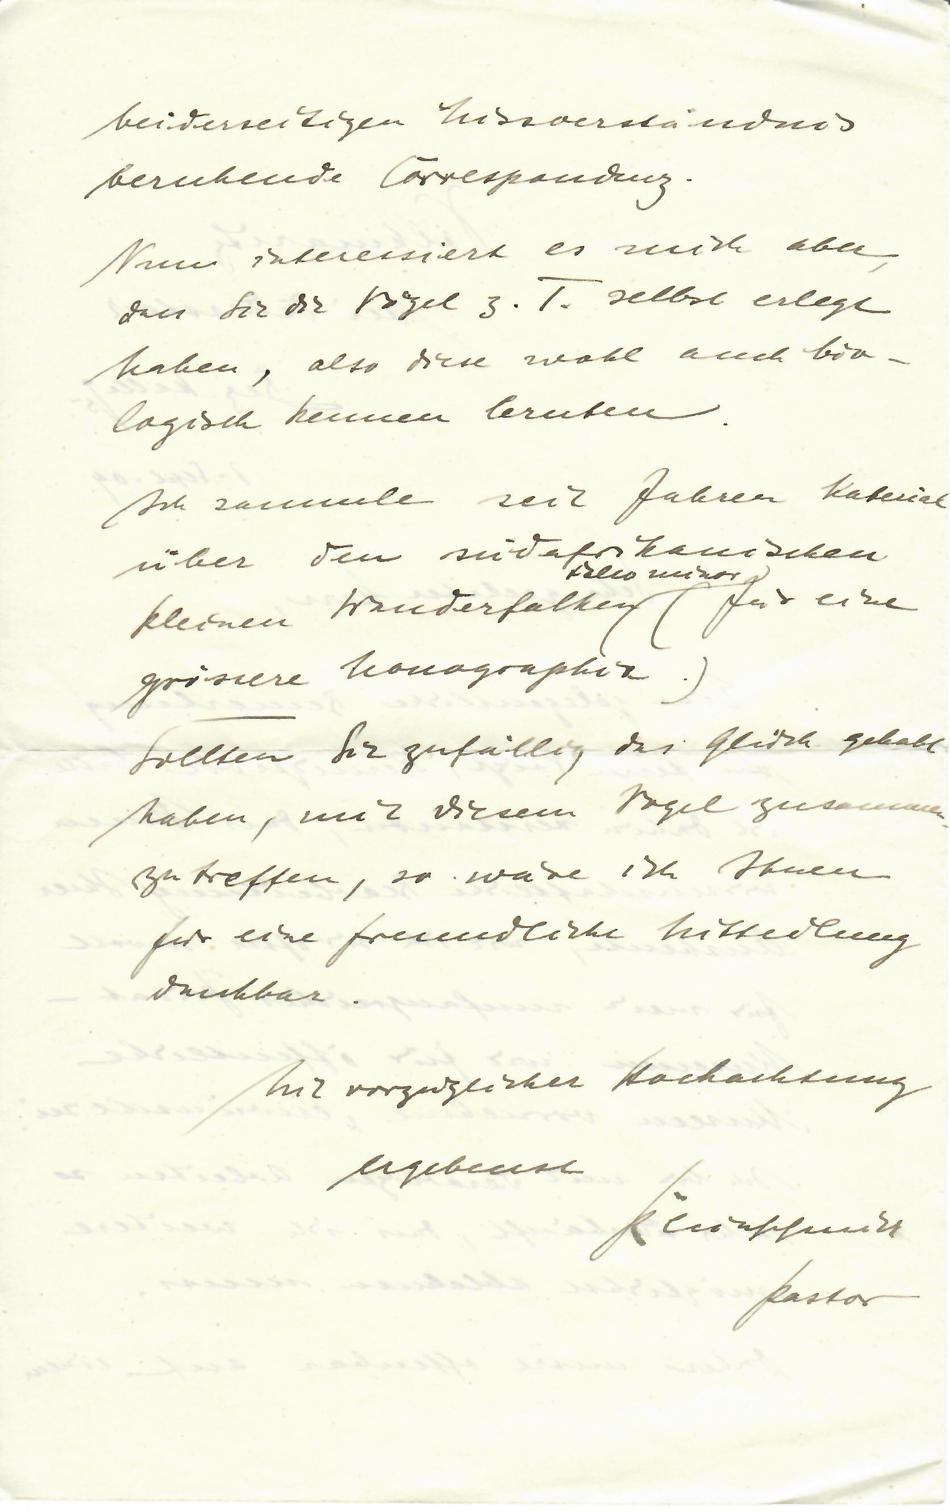 beiderseitigen Missverständnis
beruhende Correspondenz.
Nun interessiert es mich aber,
dass Sie die Vögel z. T. selbst erlegt
haben, also diese wohl auch bio-
logisch kennen lernten.
Ich sammele seit Jahren Material
über den südafrikanischen
Falco minor
kleinen Wanderfalken (für eine
grössere Monographie.)
Sollten Sie zufällig das Glück gehabt
haben, mit diesem Vogel zusammen-
zutreffen, so wäre ich Ihnen
für eine freundliche Mitteilung
dankbar.
Mit vorzüglicher Hochachtung
ergebenst
Kleinschmidt
Pastor